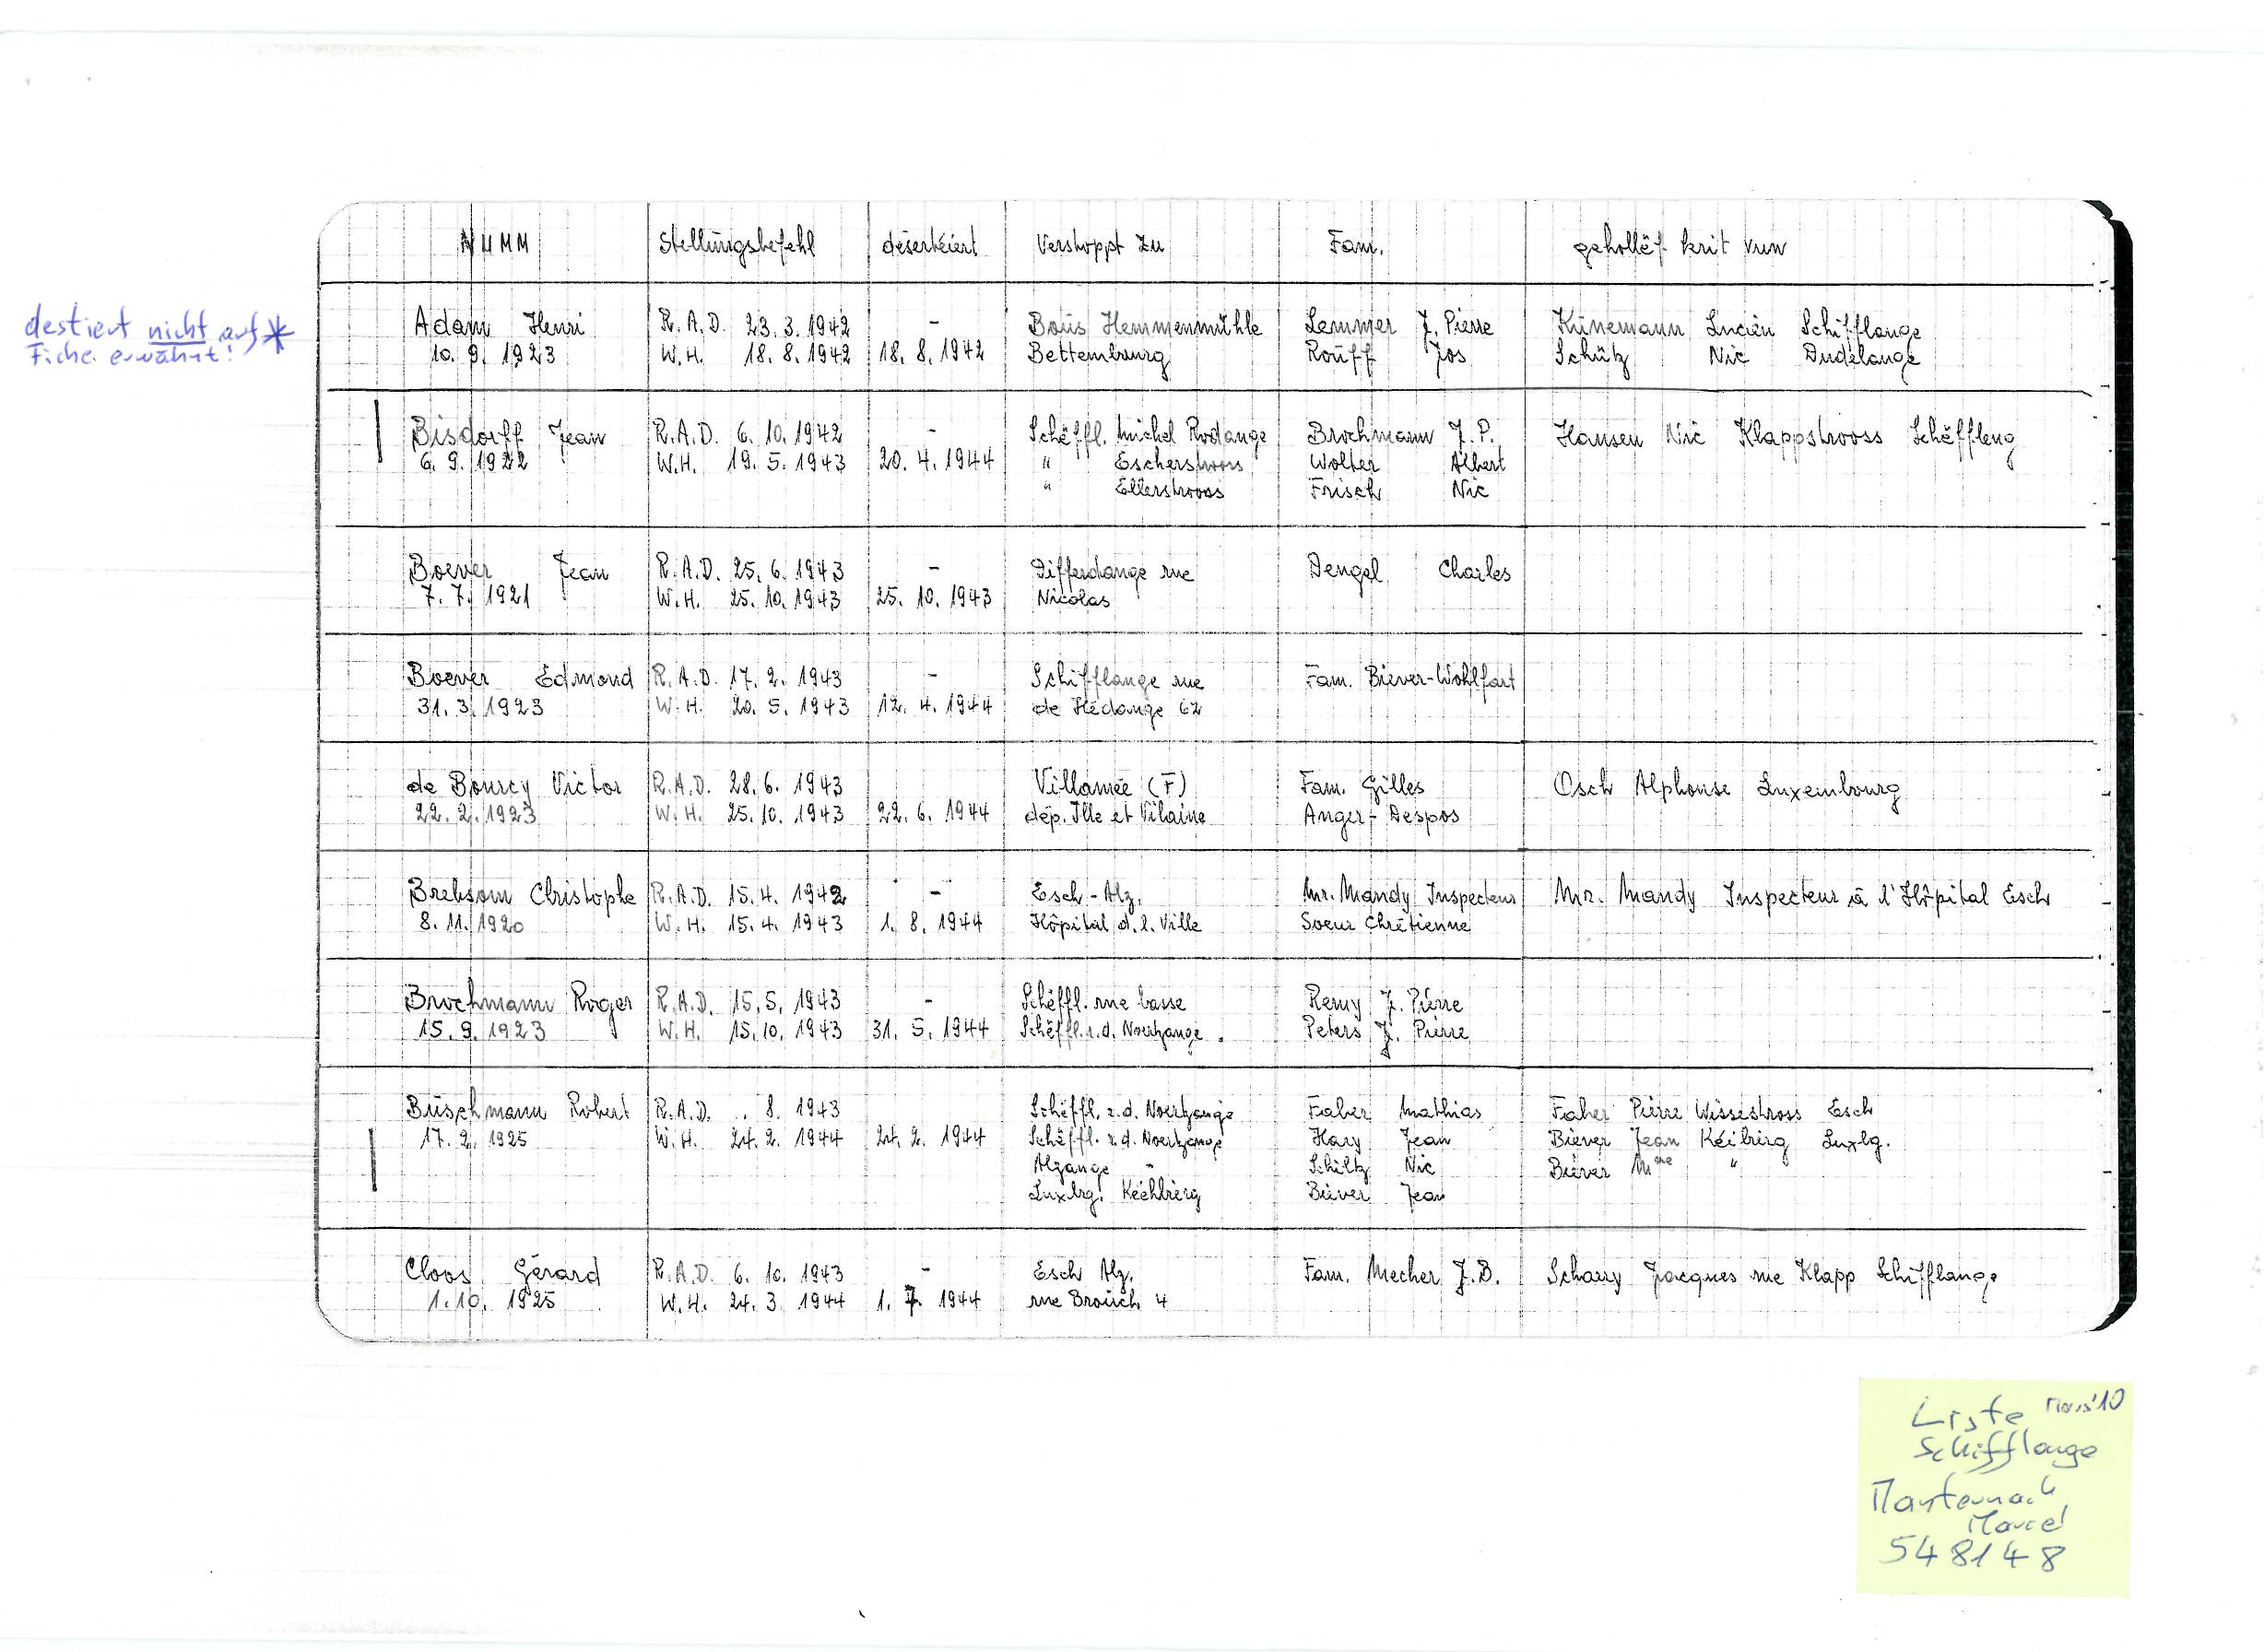 NUMM Stellungsbefehl désertéiert Verstoppt zu Fam. gehollëf krit vun
destiert nicht auf *
Fiche erwähnt!
Adam Henri R.A.D. 23. 3. 1942 - Bous Hemmenmühle Lemmer J. Pierre Künemann Lucien Schifflange
10. 9. 1923 W.H. 18. 8. 1942 18. 8. 1942 Bettemburg Rouff Jos Schütz Nic Dudelange
Bisdorff Jean R.A.D. 6. 10. 1942 - Schëffl. Michel Rodange Brochmann J.P. Hansen Nic Klappstrooss Schëffleng
6. 9. 1922 W.H. 19. 5. 1943 20. 4. 1944 " Escherstrooss Wolter Albert
" Ellerstrooss Frisch Nic
Boever Jean R.A.D. 25. 6. 1943 - Differdange rue Dengel Charles
7. 7. 1921 W.H. 25. 10. 1943 25. 10. 1943 Nicolas
Boever Edmond R.A.D. 17. 2. 1943 - Schifflange rue Fam. Biever-Wohlfart
31. 3. 1923 W.H. 20. 5. 1943 12. 4. 1944 de Hédange 62
de Bourcy Victor R.A.D. 28. 6. 1943 Villamée (F) Fam. Gilles Osch Alphonse Luxembourg
22. 2. 1923 W.H. 25. 10. 1943 22. 6. 1944 dép. Ille et Vilaine Anger-Despos
Brebsom Christophe R.A.D. 15. 4. 1942 - Esch-Alz. Mr. Mandy Inspecteur Mr. Mandy Inspecteur à l'Hôpital Esch
8. 11. 1920 W.H. 15. 4. 1943 1. 8. 1944 Hôpital d. l. Ville Soeur Chrétienne
Brochmann Roger R.A.D. 15. 5. 1943 - Schëffl. rue basse Remy J. Pierre
15. 9. 1923 W.H. 15. 10. 1943 31. 5. 1944 Schëffl. r. d. Noertzange. Peters J. Pierre
Büschmann Robert R.A.D. . 8. 1943 Schëffl. r. d. Noertzange Faber Mathias Faber Pierre Wissestrooss Esch
17. 2. 1925 W.H. 24. 2. 1944 24. 2. 1944 Schëffl. r. d. Noertzange Hary Jean Biever Jean Kéibierg Luxbg.
Alzange " Schiltz Nic Biever Mme "
Luxbrg. Kéehlbierg Biever Jean
Cloos Gérard R.A.D. 6. 10. 1943 - Esch Alz. Fam. Mecher J.B. Scharry Jacques rue Klapp Schifflange
1. 10. 1925 W.H. 24. 3. 1944 1. 7. 1944 rue Brouch 4
Liste Mars'10
Schifflange
Manternach
Marcel
548148